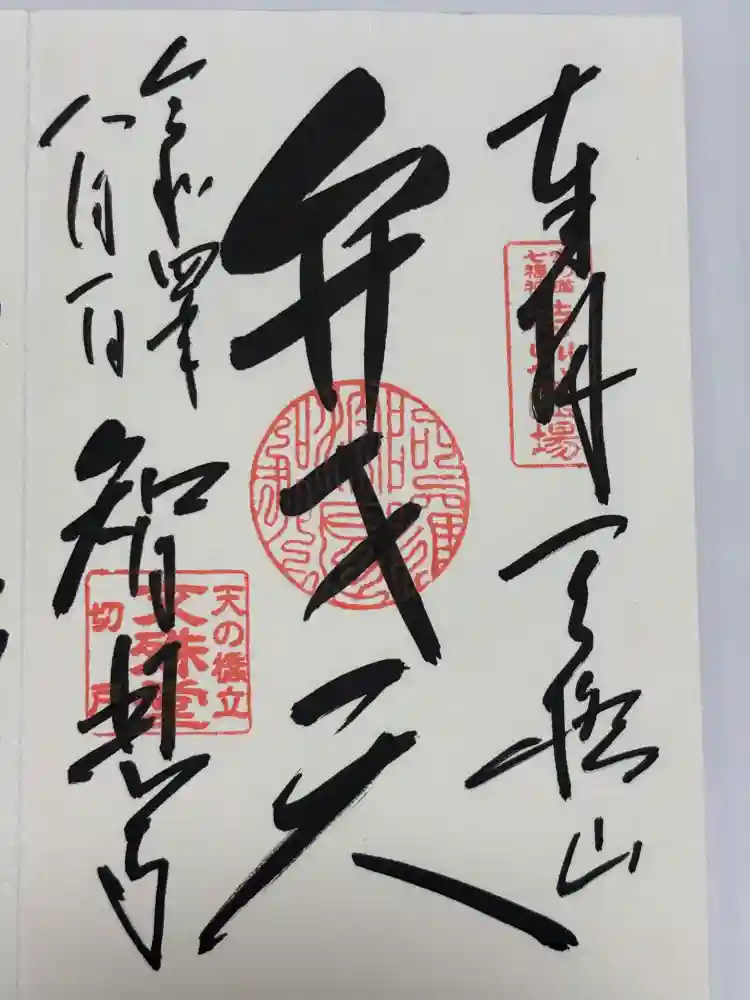 奉拝 天橋山
弁才天
令和四年
八月一日
智恩寺
七福神
霊場
天の橋立
文殊堂
切戸